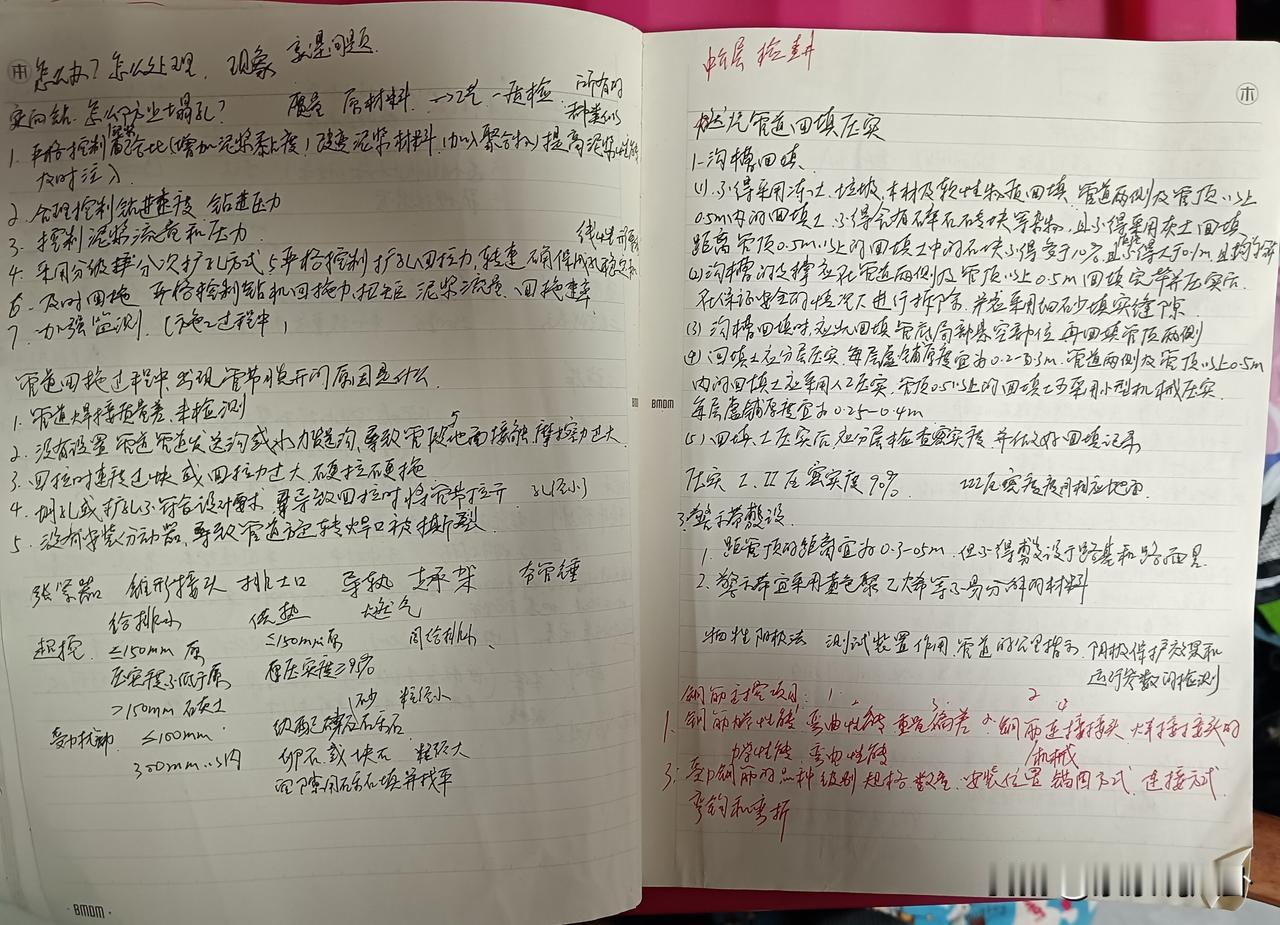 怎么办？怎么处理. 现象
定向钻. 怎么防止塌孔？ 质量 原材料 →工艺 — 质检 所有的
1. 严格控制配合比(增加泥浆黏度)改变泥浆材料(加入聚合物)提高泥浆性能
及时注入.
2. 合理控制钻进速度 钻进压力
3. 控制泥浆流量和压力
4. 采用分级 分次扩孔方式 5严格控制扩孔回拉力,转速 确保成孔稳定
6. 及时回拖 严格控制钻机回拖力.扭矩 泥浆流量. 回拖速率
7. 加强监测. (施工过程中)
管道回拖过程中出现管节脱开的原因是什么
1. 管道焊接质量差. 未检测
2. 没有设置管道 管道发送沟或水力发送沟,导致管段与地面接触.摩擦力过大
3. 回拉时速度过快或回拉力过大 硬拉硬拖
4. 导孔或扩孔不符合设计要求 导致回拉时将管节拉开 孔径小)
5. 没有安装分动器,导致管道旋转焊口被撕裂
张紧器 锥形接头 排土口 导轨 支承架 布管锤
给排水 供热 燃气
超挖. ≤150mm 原 ≤150mm原 同给排水
压实程不低于原 原压实度≥95%
>150mm 石灰土 砂 粒径小
≤100mm 级配碎石
300mm以内 卵石或块石 粒径大
沉隙用砾石填并找平
BMDM
中层检查井
燃汽管道回填压实
1-沟槽回填
(1).不得采用冻土.垃圾.木材及软性物质回填.管道两侧及管顶以上
0.5m内的回填土.不得含有碎石砖块等杂物,且不得采用灰土回填
距离管顶0.5m以上的回填土中的石块不得多于10% 且不得大于0.1m.且均匀分布
(2)沟槽的支撑应在管道两侧及管顶以上0.5m回填完毕并压实后
在保证安全的情况下进行拆除.并应采用细砂填实缝隙
(3) 沟槽回填时应先回填管底局部悬空部位 再回填管顶两侧
(4) 回填土应分层压实.每层虚铺厚度宜为0.2-0.3m.管道两侧及管顶以上0.5m
内的回填土应采用人工压实.管顶0.5以上的回填土可采用小型机械压实
每层虚铺厚度宜为0.25-0.4m
(5) 回填土压实后应分层检查密实度.并做好回填记录
压实 I、II区密实度90% III区密实度同相应地面
3.警示带敷设.
1. 距管顶的距离宜为0.3-0.5m.但不得敷设于路基和路面里
2. 警示带宜采用黄色聚乙烯等不易分解的材料
牺牲阳极法 测试装置作用.管道的公里指示.阴极保护效果和
运行参数的检测
钢筋主控项目: 1. 2
1. 钢筋 性能 弯曲性能 重量偏差 2.钢筋连接接头.焊接接头的
力学性能.弯曲性能 机械
3. 受力钢筋的品种 级别 规格 数量.安装位置 锚固方式 连接方式
弯钩和弯折
BMDM